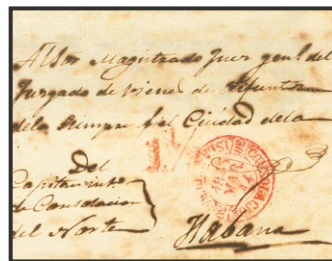 Al Sor Magistrado Juez genl. del
Juzgado de vienes de Difuntos
de la Siempre fiel Ciudad de la
Del
Capitan
de Consolacion
del Norte
Habana